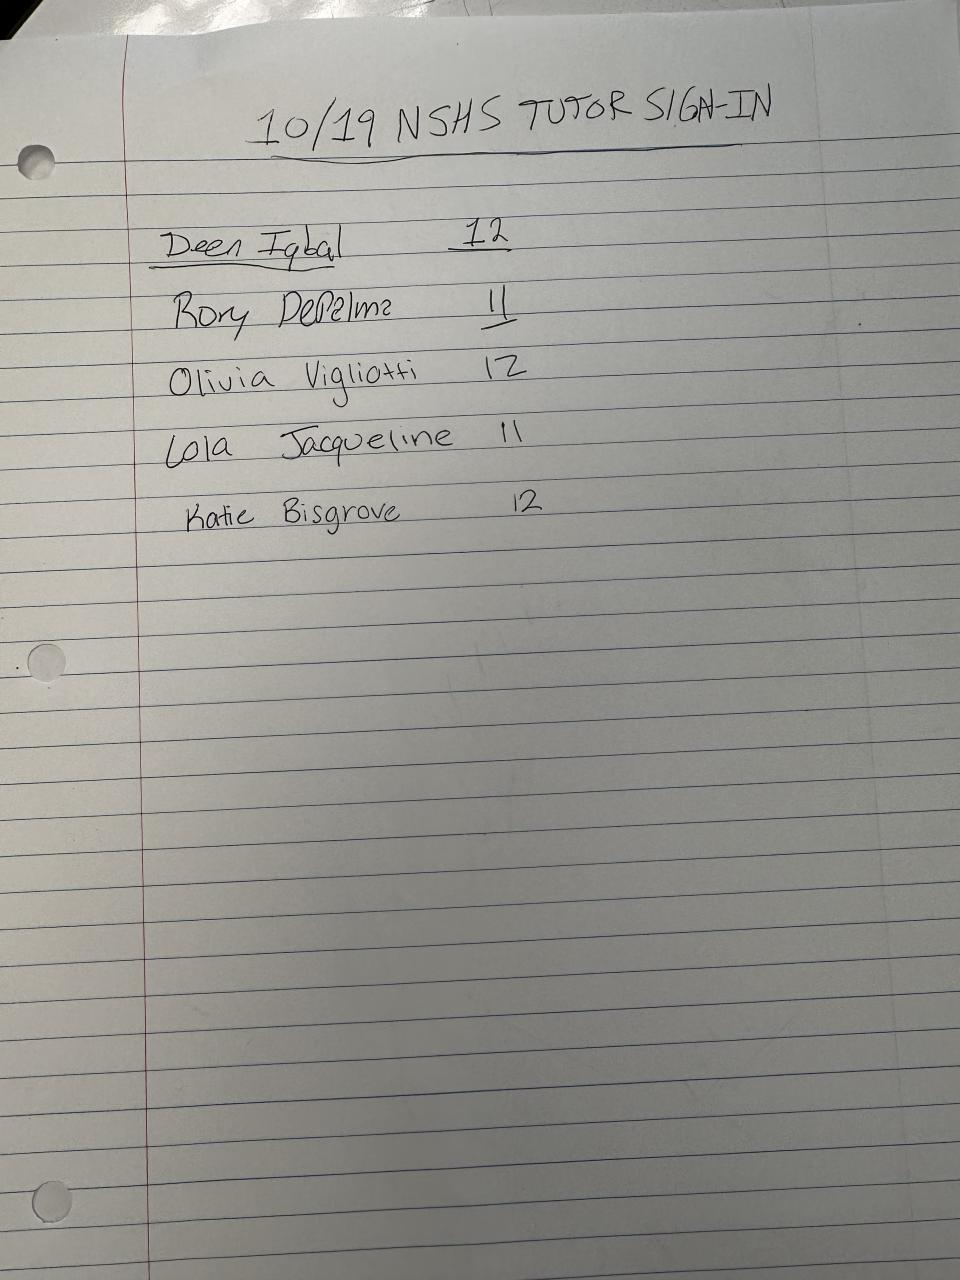 10/19 NSHS TUTOR SIGN-IN
Deen Iqbal 12
Rory DePalma 11
Olivia Vigliotti 12
Lola Jacqueline 11
Katie Bisgrove 12